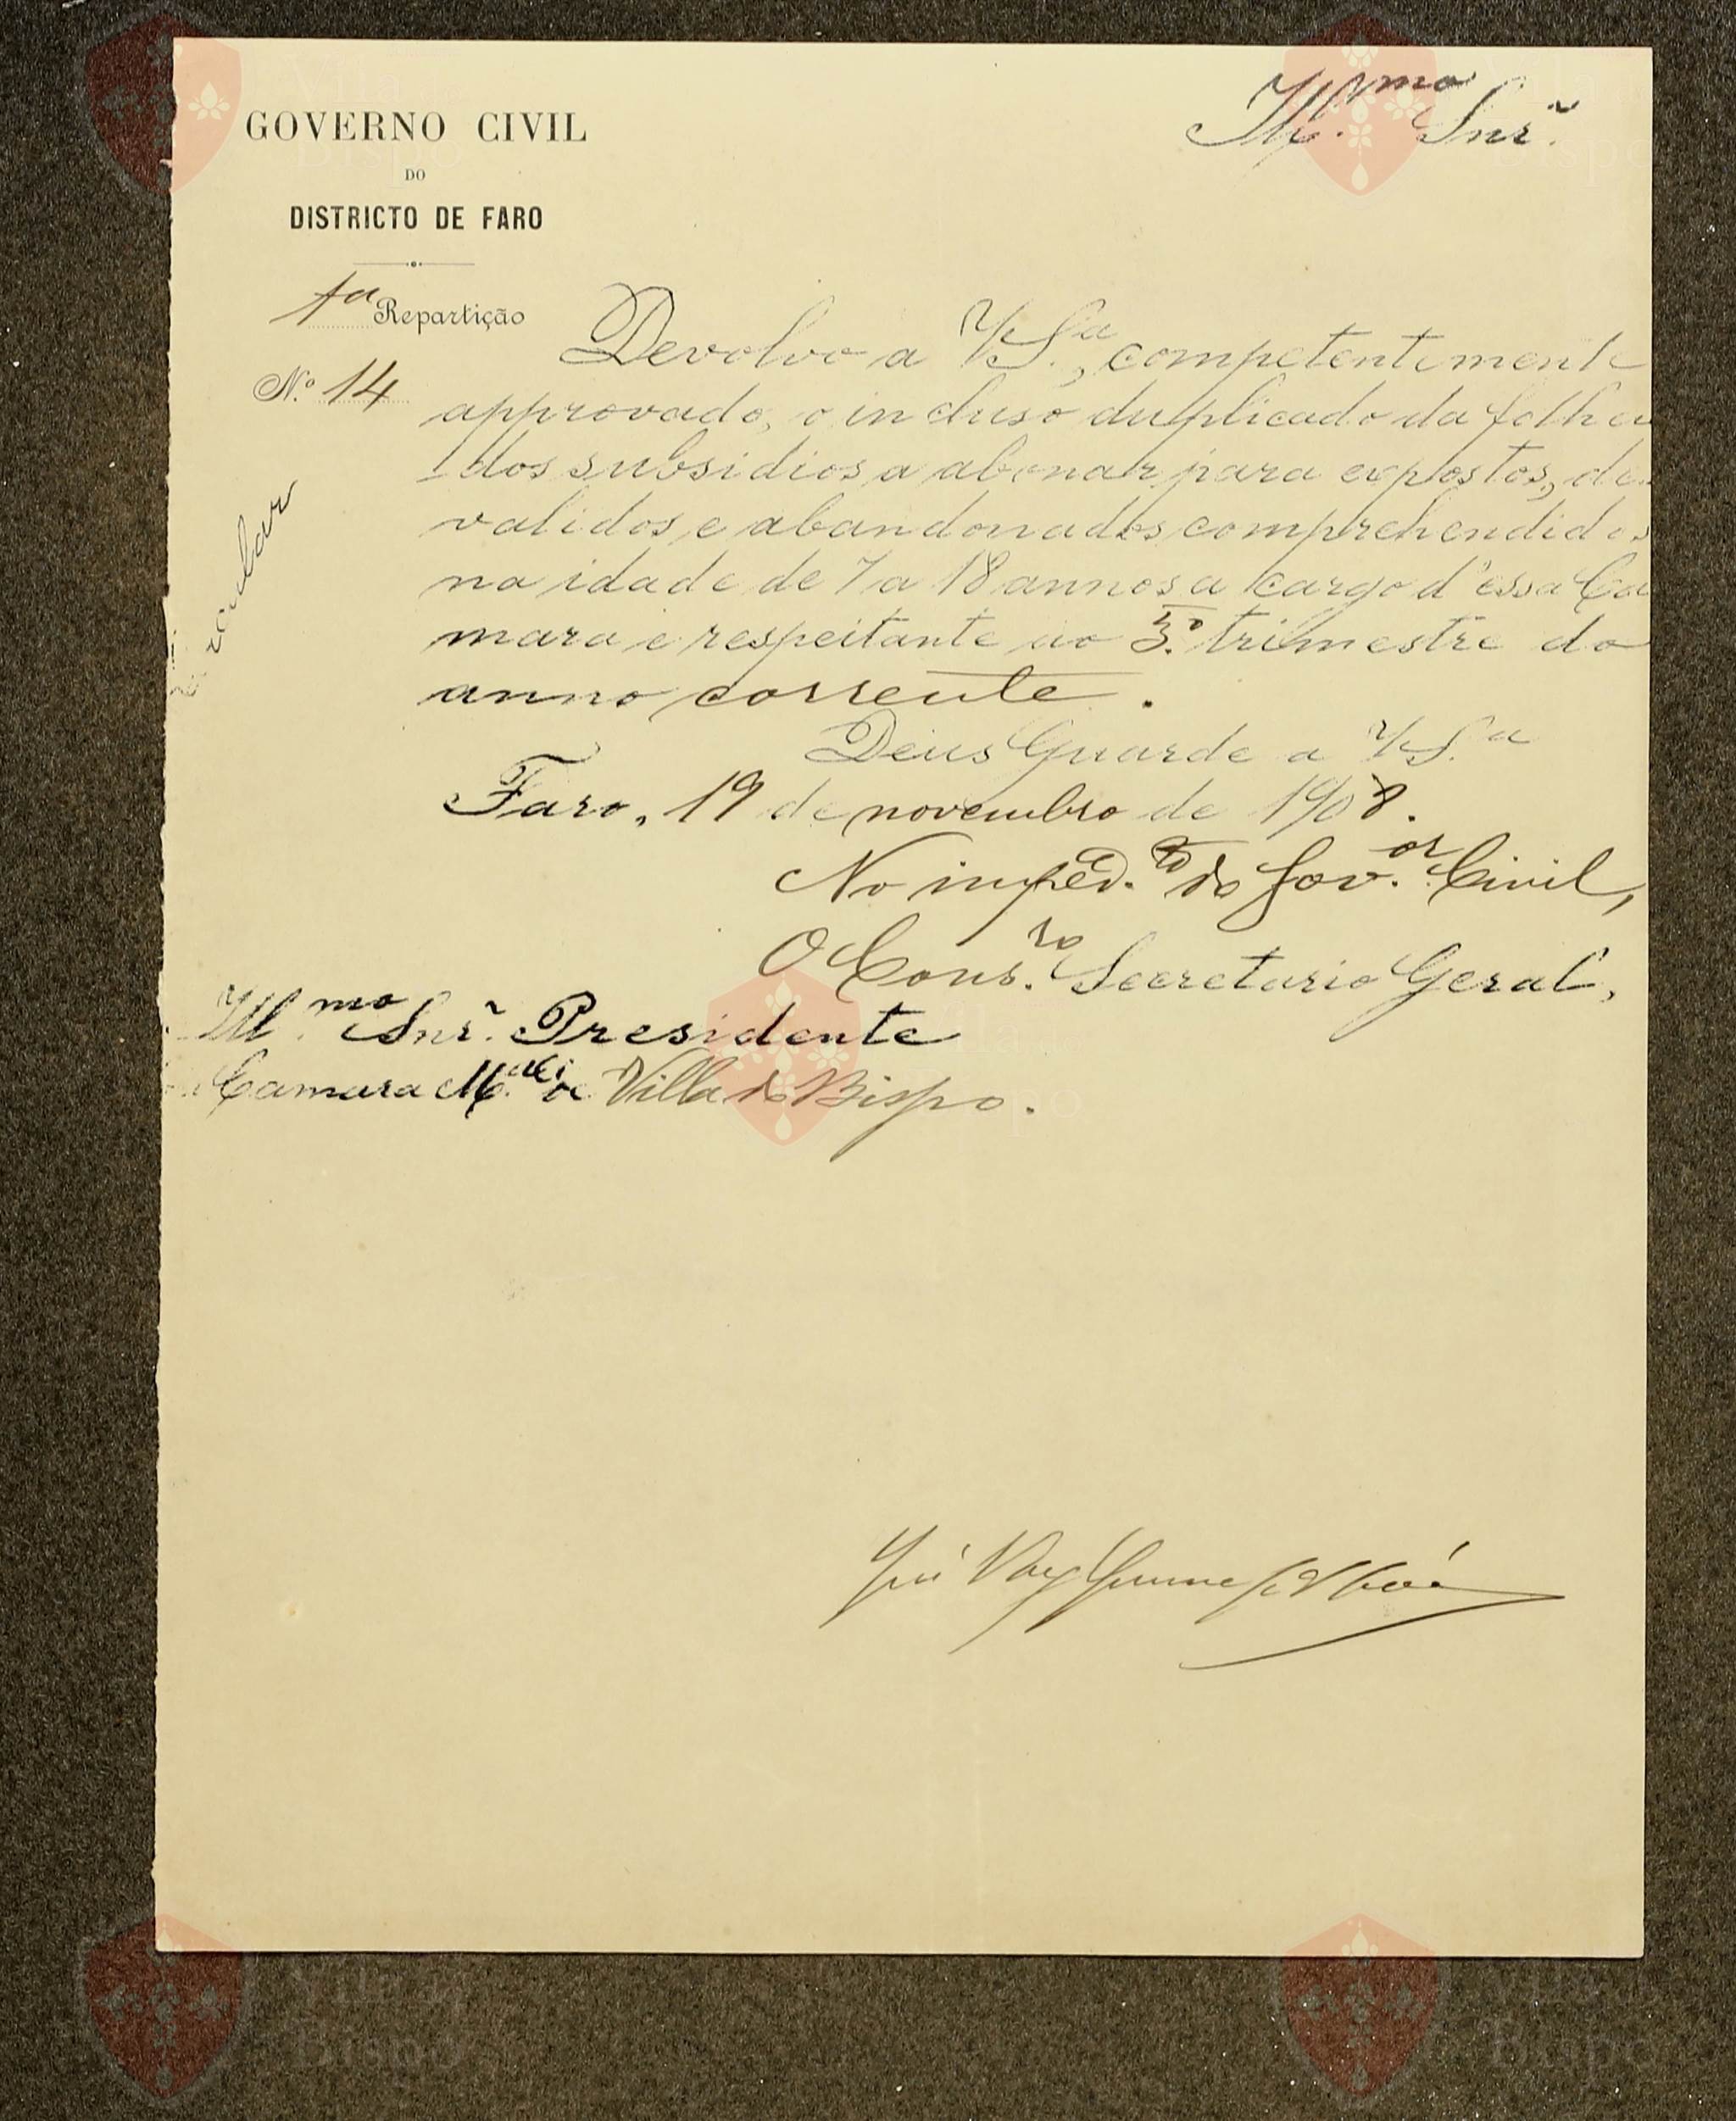 GOVERNO CIVIL
DO
DISTRICTO DE FARO
1a Repartição
N.º 14
Ill.mo Snr.
Devolvo a V S.a, competentemente
approvado, o incluso duplicado da folha
dos subsidios a abonar para expostos, des
validos e abandonados comprehendidos
na idade de 7 a 18 annos a cargo d'essa Ca
mara e respeitante ao 3.º trimestre do
anno corrente.
Deus Guarde a V S.a
Faro, 19 de novembro de 1908.
No imped.to do Gov.or Civil,
O Cons.ro Secretario Geral,
Ill.mo Snr. Presidente
Camara M.al de Villa do Bispo.
Vila do Bispo